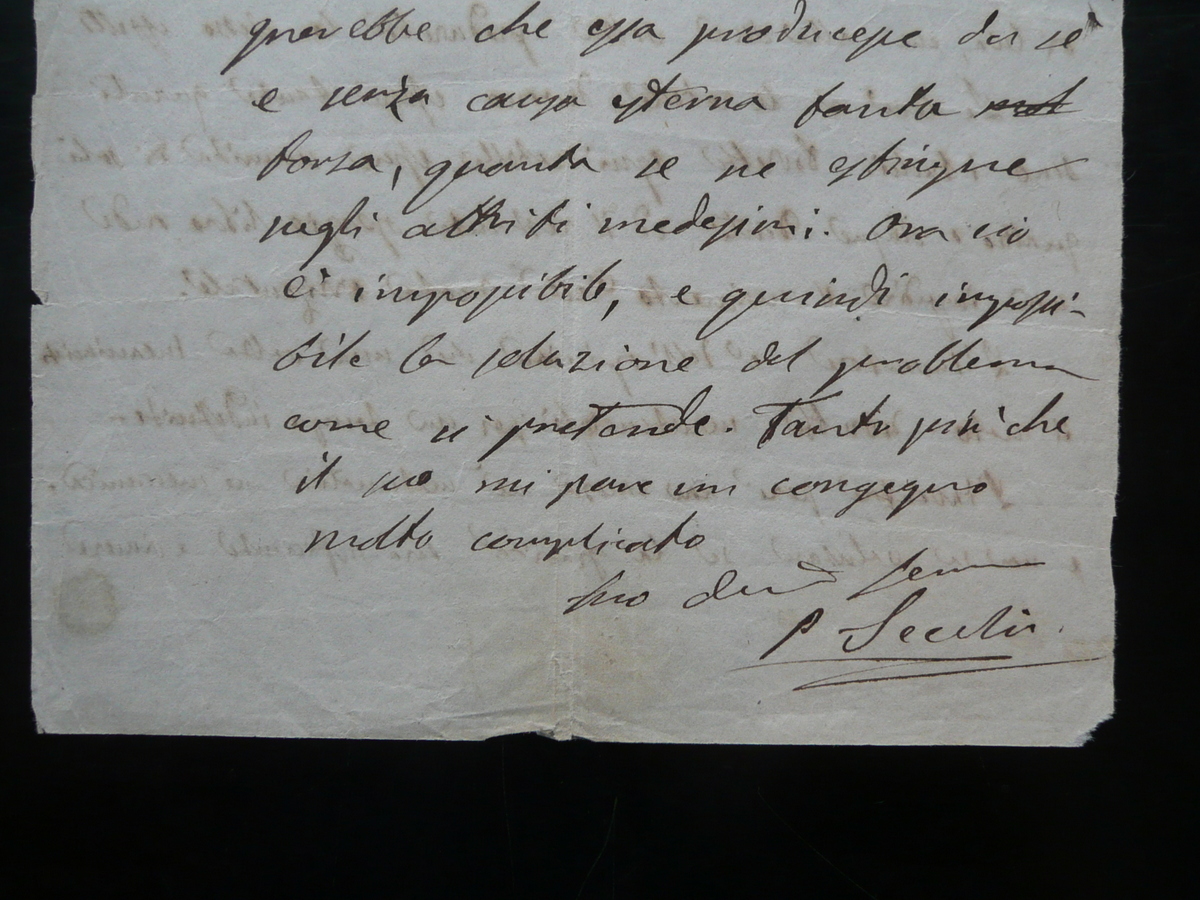 che essa producesse da sè
e senza causa esterna tanta
forza, quanta se ne estingue
negli attriti medesimi. Ora ciò
è impossibile, e quindi impossi-
bile la soluzione del problema
come si pretende. Tanto più che
il suo mi pare un congegno
molto complicato
Suo dev servo
P Secchi.